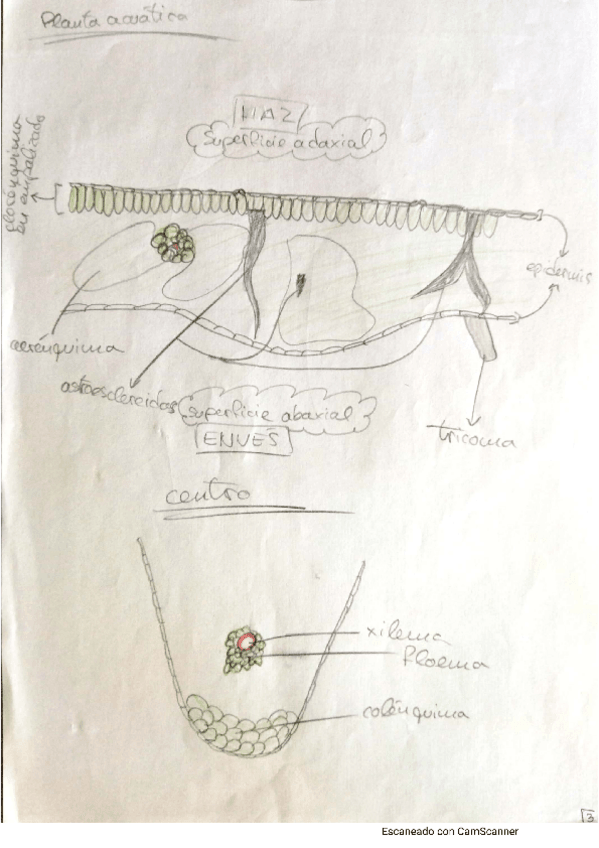 Planta acuática
HAZ
Superficie adaxial
clorénquima
en empalizada
epidermis
aerénquima
astroesclereidas
superficie abaxial
ENVÉS
tricoma
centro
xilema
floema
colénquima
3
Escaneado con CamScanner